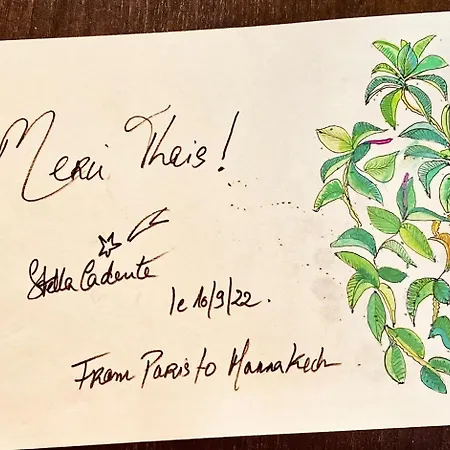 Merci Thais !
Stella Cadente
le 16/9/22.
From Paris to Marrakech.